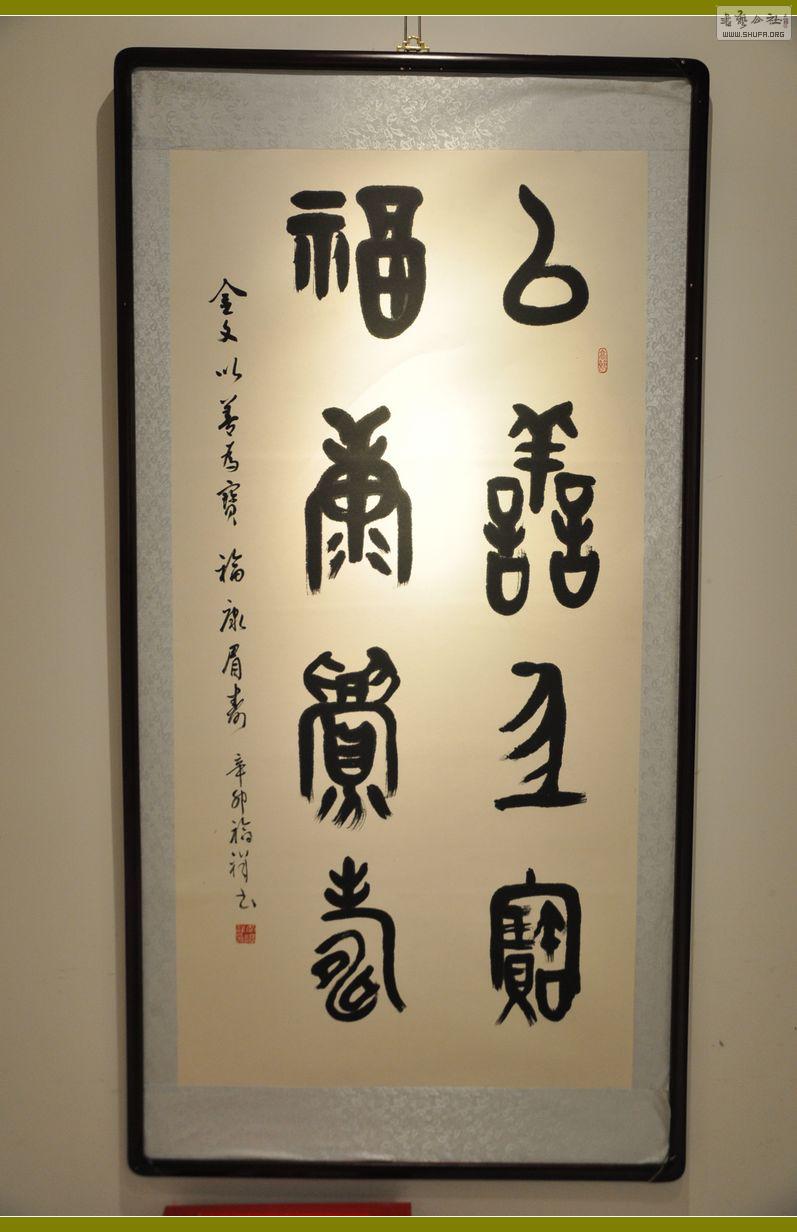 書藝公社
WWW.SHUFA.ORG
以善為寶
福康眉壽
金文以善為寶 福康眉壽 辛卯福祥书